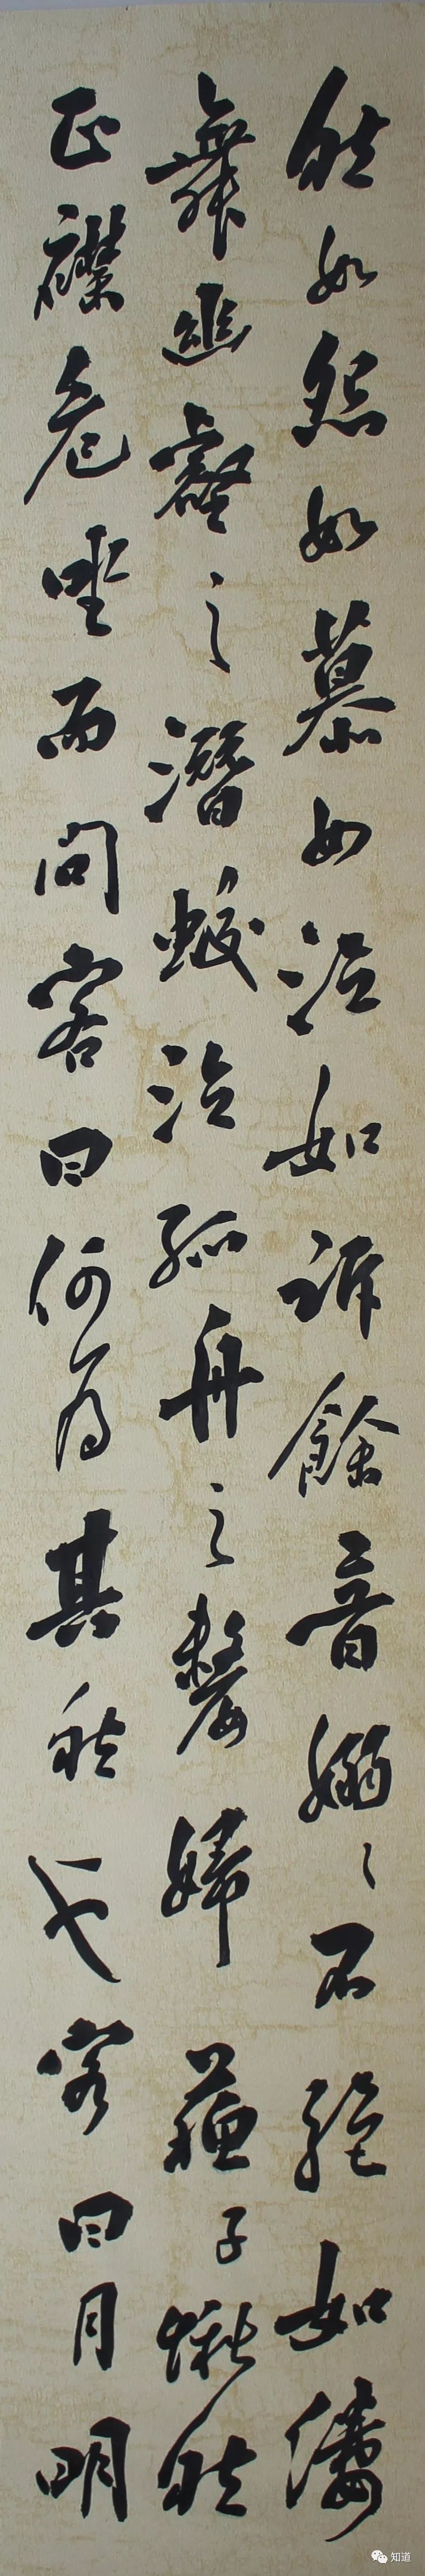 然如怨如慕如泣如訴餘音嫋〻不絕如縷
舞幽壑之潛蛟泣孤舟之嫠婦蘇子愀然
正襟危坐而問客曰何為其然也客曰月明
知道